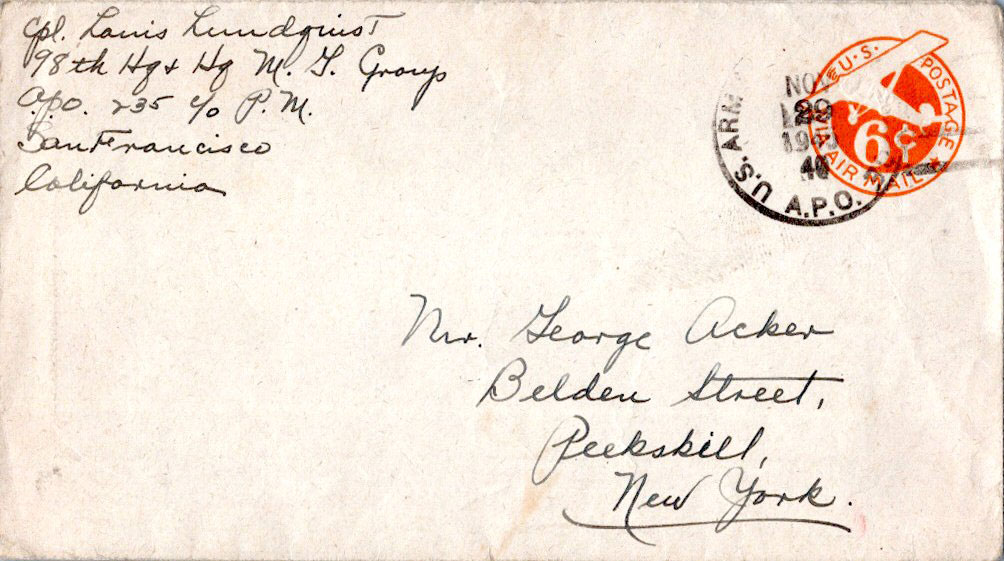 Cpl. Louis Lundquist
98th Hq & Hq M. G. Group
A.P.O. 235 c/o P.M.
San Francisco
California
U.S. POSTAGE
6¢
VIA AIR MAIL
U.S. ARMY
NOV
29
A.P.O.
Mr. George Acker
Belden Street,
Peekskill,
New York.